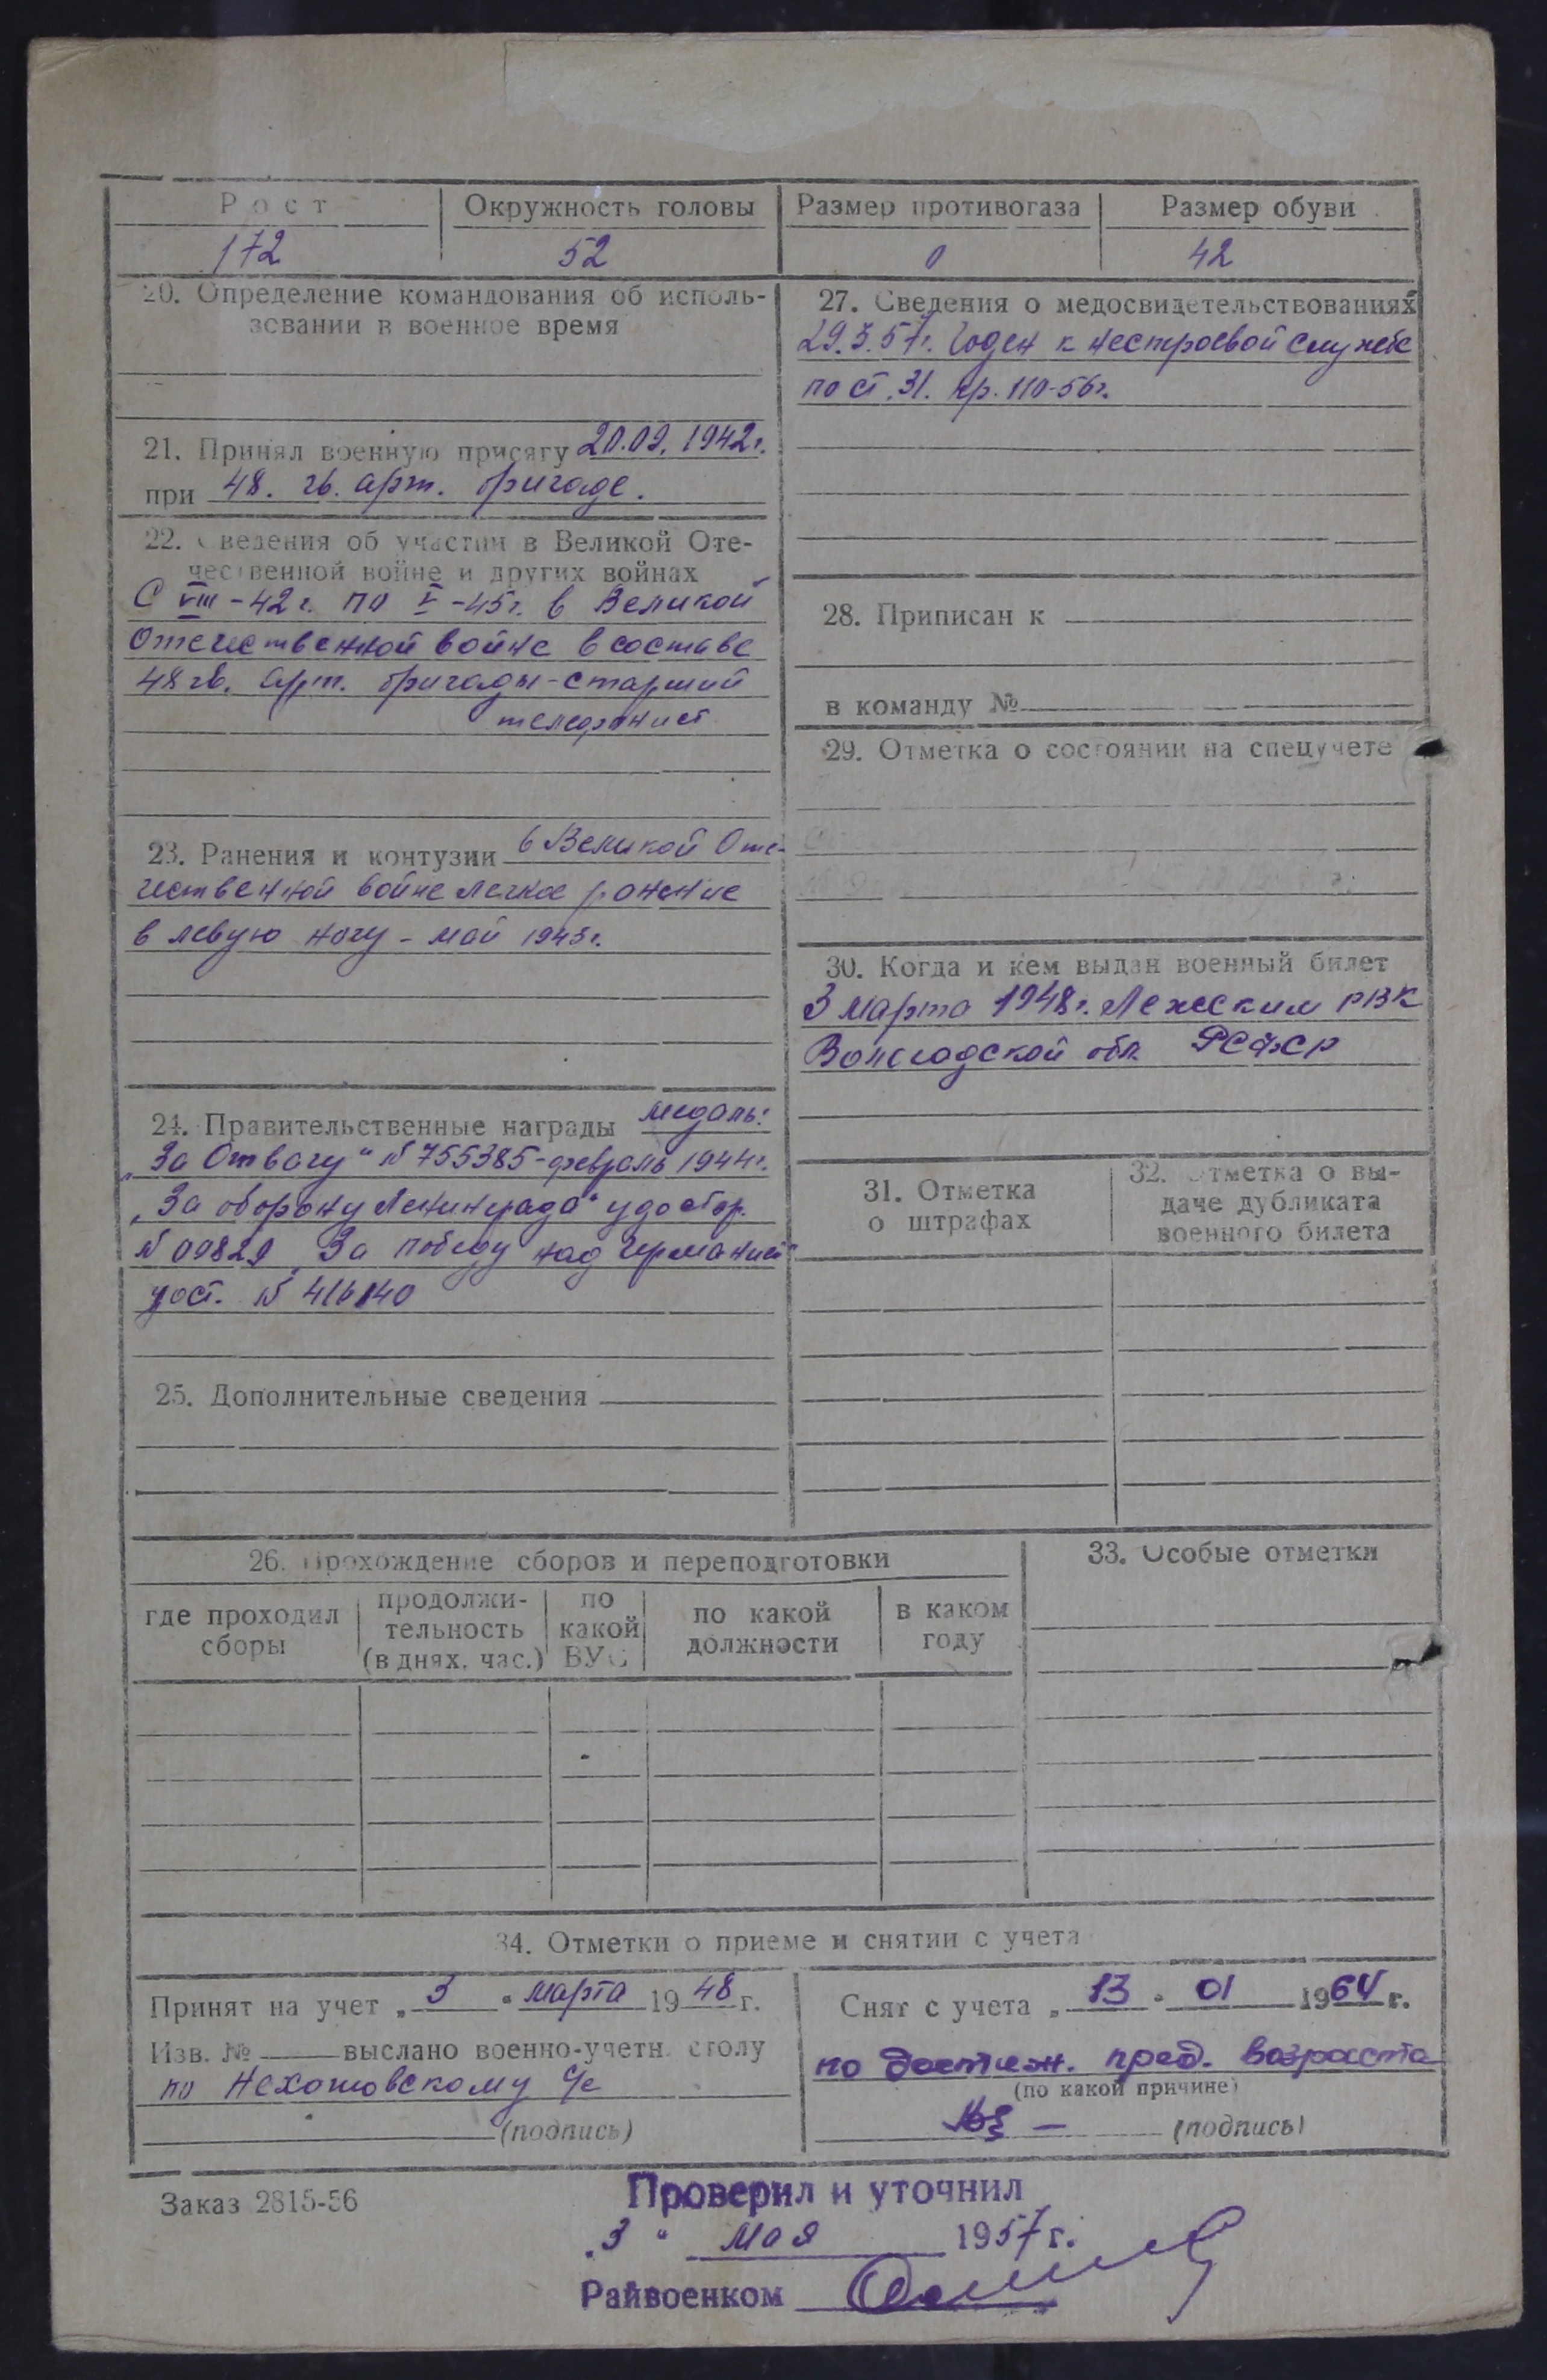 Рост
Окружность головы
Размер противогаза
Размер обуви
172
52
0
42
20. Определение командования об исполь-
зовании в военное время
21. Принял военную присягу 20.09.1942г.
при 48. гв. арт. бригаде.
22. Сведения об участии в Великой Оте-
чественной войне и других войнах
С VIII-42г. по V-45г. в Великой
Отечественной войне в составе
48 гв. арт. бригады - старший
телефонист
23. Ранения и контузии в Великой Оте-
чественной войне легкое ранение
в левую ногу - май 1943г.
24. Правительственные награды медаль:
„За Отвагу" № 755385 - февраль 1944г.
„За оборону Ленинграда" удостор.
№ 09829 „За победу над Германией"
уост. № 416140
25. Дополнительные сведения
27. Сведения о медосвидетельствованиях
29.3.57г. Годен к нестроевой службе
по ст. 31. пр. 110-56г.
28. Приписан к
в команду №
29. Отметка о состоянии на спецучете
30. Когда и кем выдан военный билет
3 марта 1948г. Лежским РВК
Вологодской обл. РСФСР
31. Отметка
о штрафах
32. Отметка о вы-
даче дубликата
военного билета
26. Прохождение сборов и переподготовки
где проходил
сборы
продолжи-
тельность
(в днях, час.)
по
какой
ВУС
по какой
должности
в каком
году
33. Особые отметки
34. Отметки о приеме и снятии с учета
Принят на учет „ 3 " марта 1948 г.
Изв. № выслано военно-учетн. столу
по Нехотовскому с/с
(подпись)
Снят с учета „ 13 " 01 1964 г.
по достиж. пред. возраста
(по какой причине)
(подпись)
Заказ 2815-56
Проверил и уточнил
„3" мая 1957 г.
Райвоенком